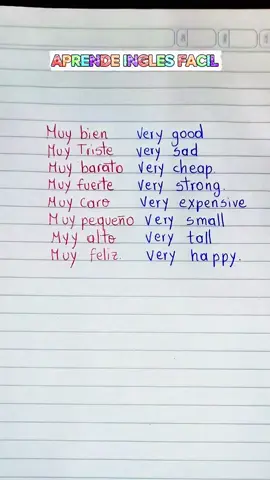 APRENDE INGLES FACIL
Muy bien very good
Muy Triste very sad
Muy barato very cheap.
Muy fuerte very strong.
Muy caro very expensive
Muy pequeño very small
Myy alto very tall
Muy feliz. very happy.